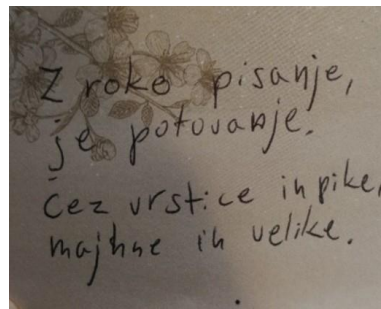 Z roko pisanje,
je potovanje.
Čez vrstice in pike,
majhne in velike.